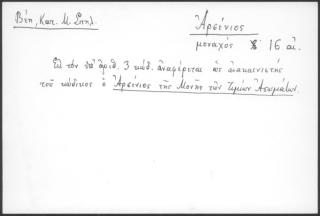 Βέη, Κατ. Μ. Σπηλ.
Ἀρσένιος
μοναχὸς 16 αἰ.
Ἐκ τὸν ὑπ' ἀριθ. 3 κώδ. ἀναφέρεται ὡς ἀνακαινιστὴς
τοῦ κώδικος ὁ Ἀρσένιος τῆς Μονῆς τῶν Τιμίων Ἀσωμάτων.